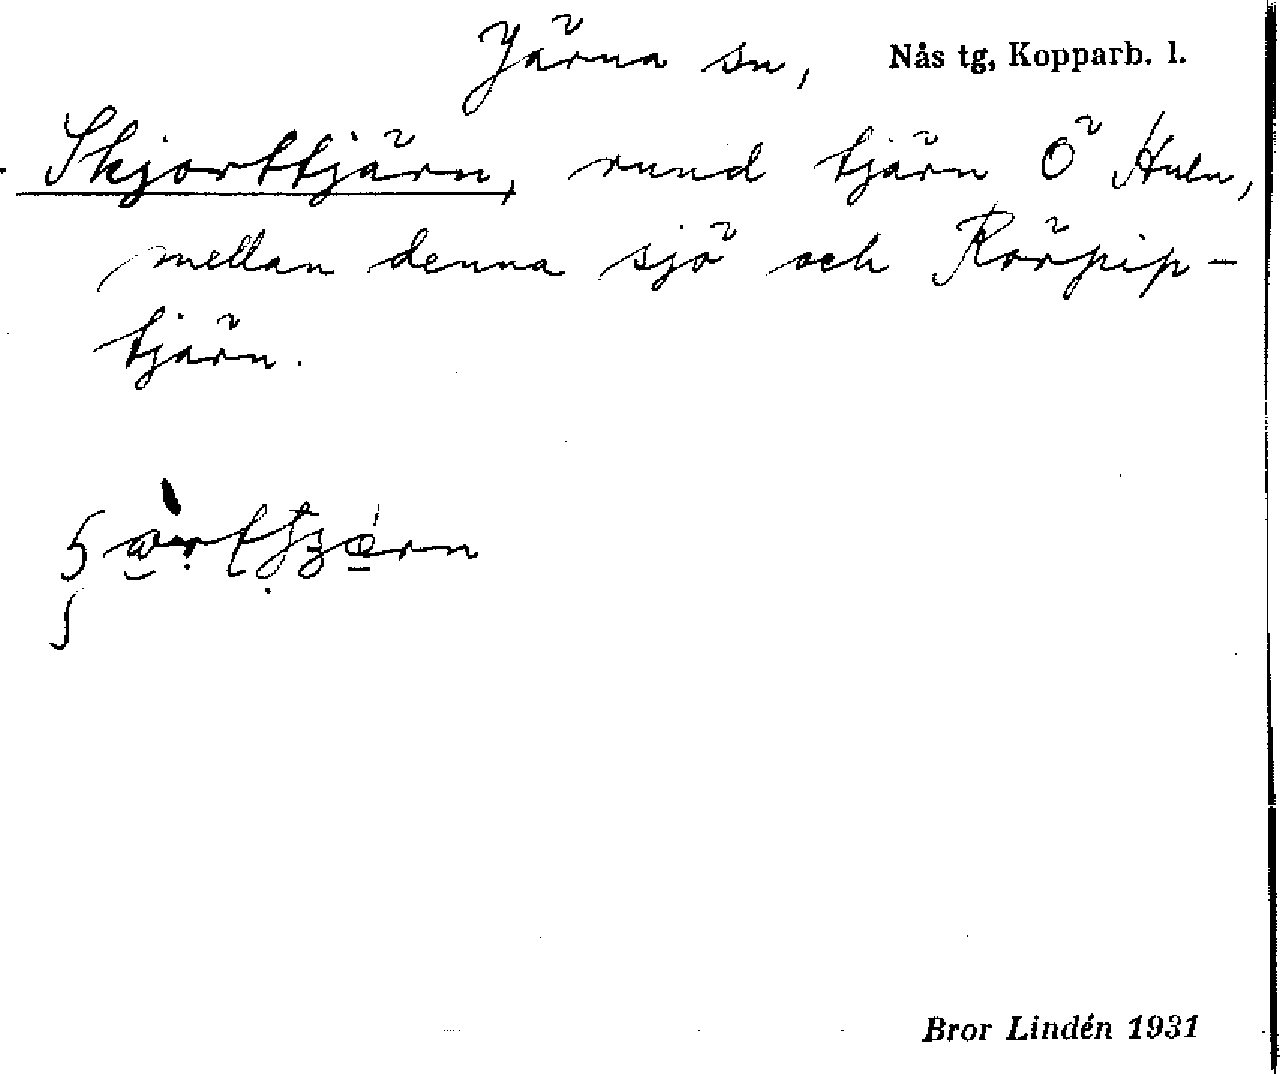 Järna sn, Nås tg, Kopparb. l.
Skjorttjärn, rund tjärn Ö Huln,
mellan denna sjö och Rörpip-
tjärn.
Bror Lindén 1931